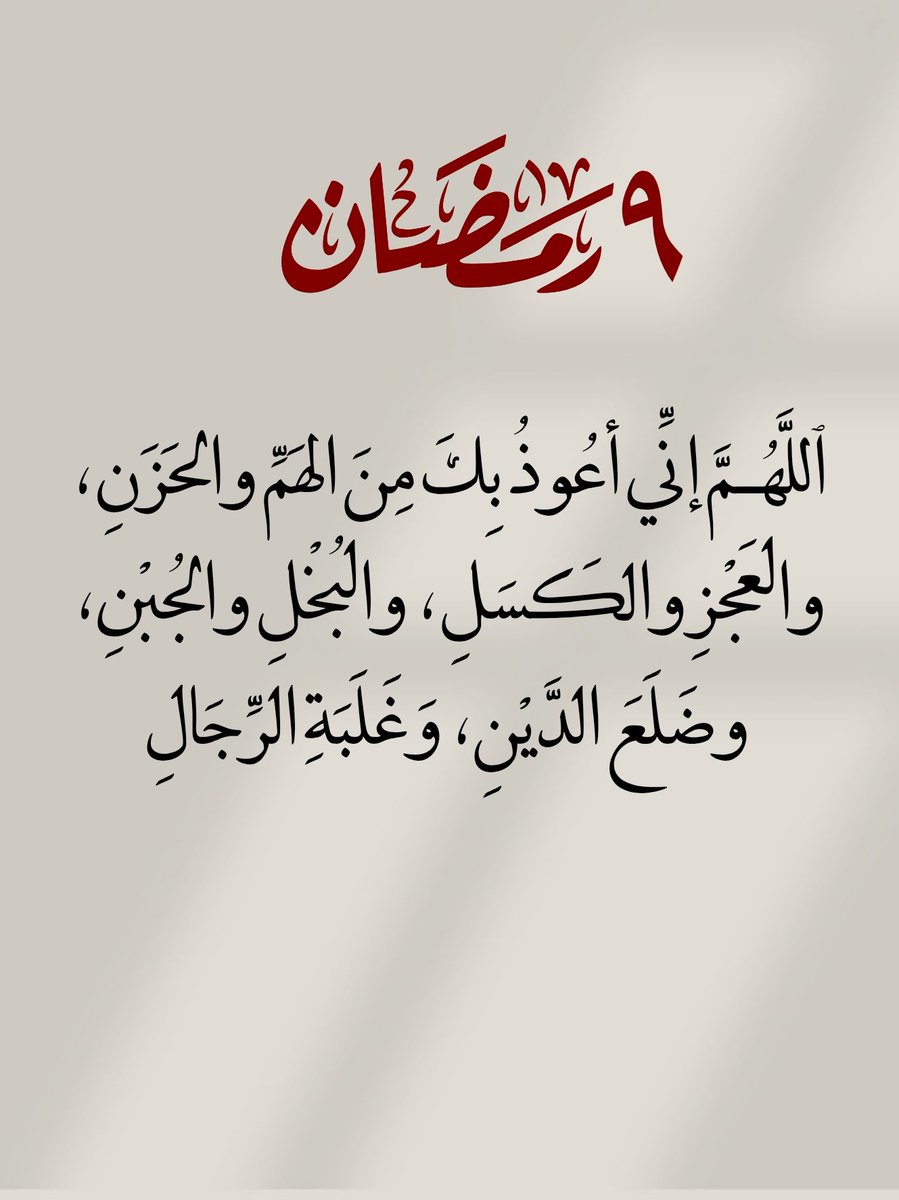 ٩ رمضان
ٱللَّهُمَّ إنِّي أعُوذُ بِكَ مِنَ الهَمِّ والحَزَنِ،
والعَجْزِ والكَسَلِ، والبُخْلِ والجُبْنِ،
وضَلَعَ الدَّيْنِ، وَغَلَبَةِ الرِّجَالِ